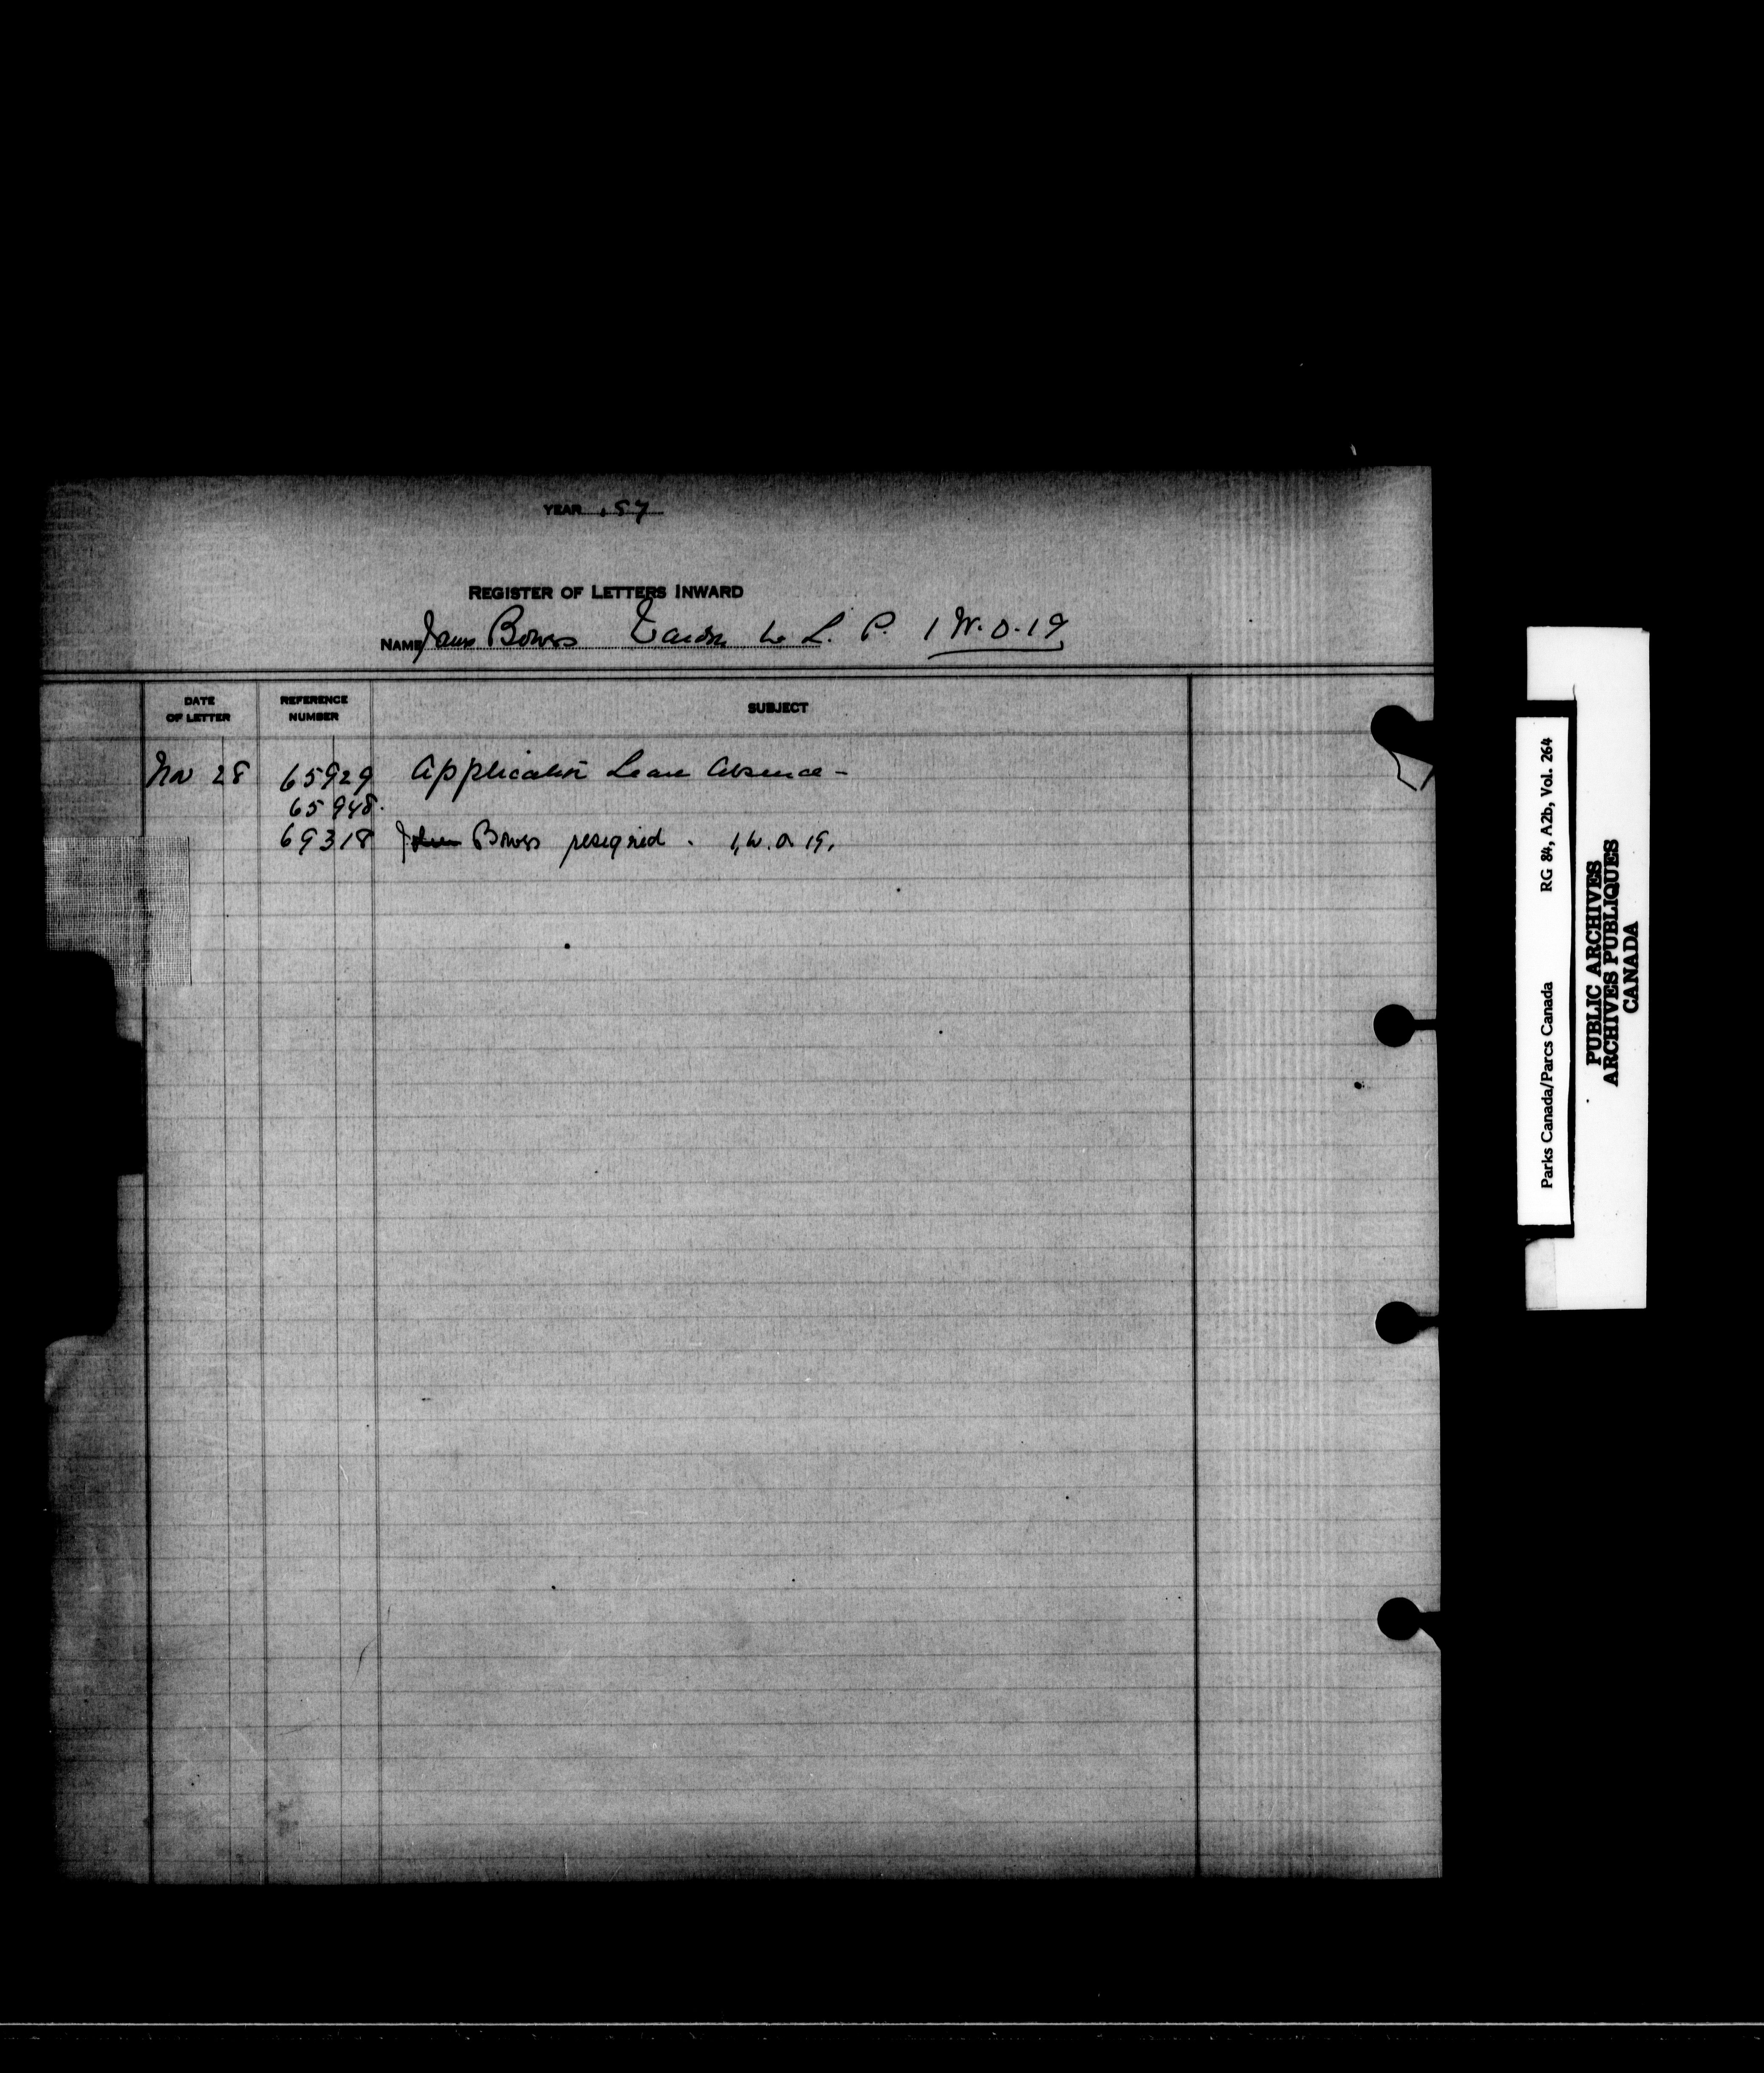 YEAR .57
REGISTER OF LETTERS INWARD
NAME James Bowes W. L. P. 1 W.O.19
DATE OF LETTER REFERENCE NUMBER SUBJECT
Nov 28 65929 Application Leave Absence -
65948.
69318 Bowes resigned . 1, W. O. 19.
Parks Canada/Parcs Canada RG 84, A2b, Vol. 264
PUBLIC ARCHIVES
ARCHIVES PUBLIQUES
CANADA